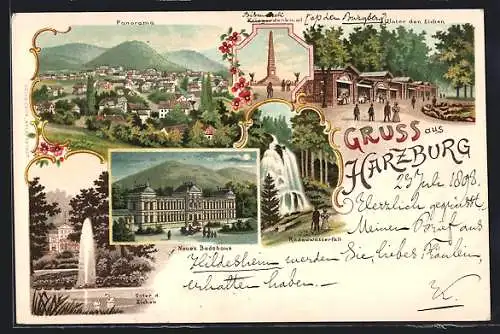 Panorama
Bismarck
Kriegerdenkmal
(auf dem Burgberg)
Unter den Eichen
GRUSS aus
HARZBURG
23 Juli 1898.
Herzlich gegrüsst
Meinen Brief aus
Neues Badehaus
Radauwasserfall
Hildesheim werden Sie, liebes Fräulein,
erhalten haben.
Unter d.
Eichen
K.